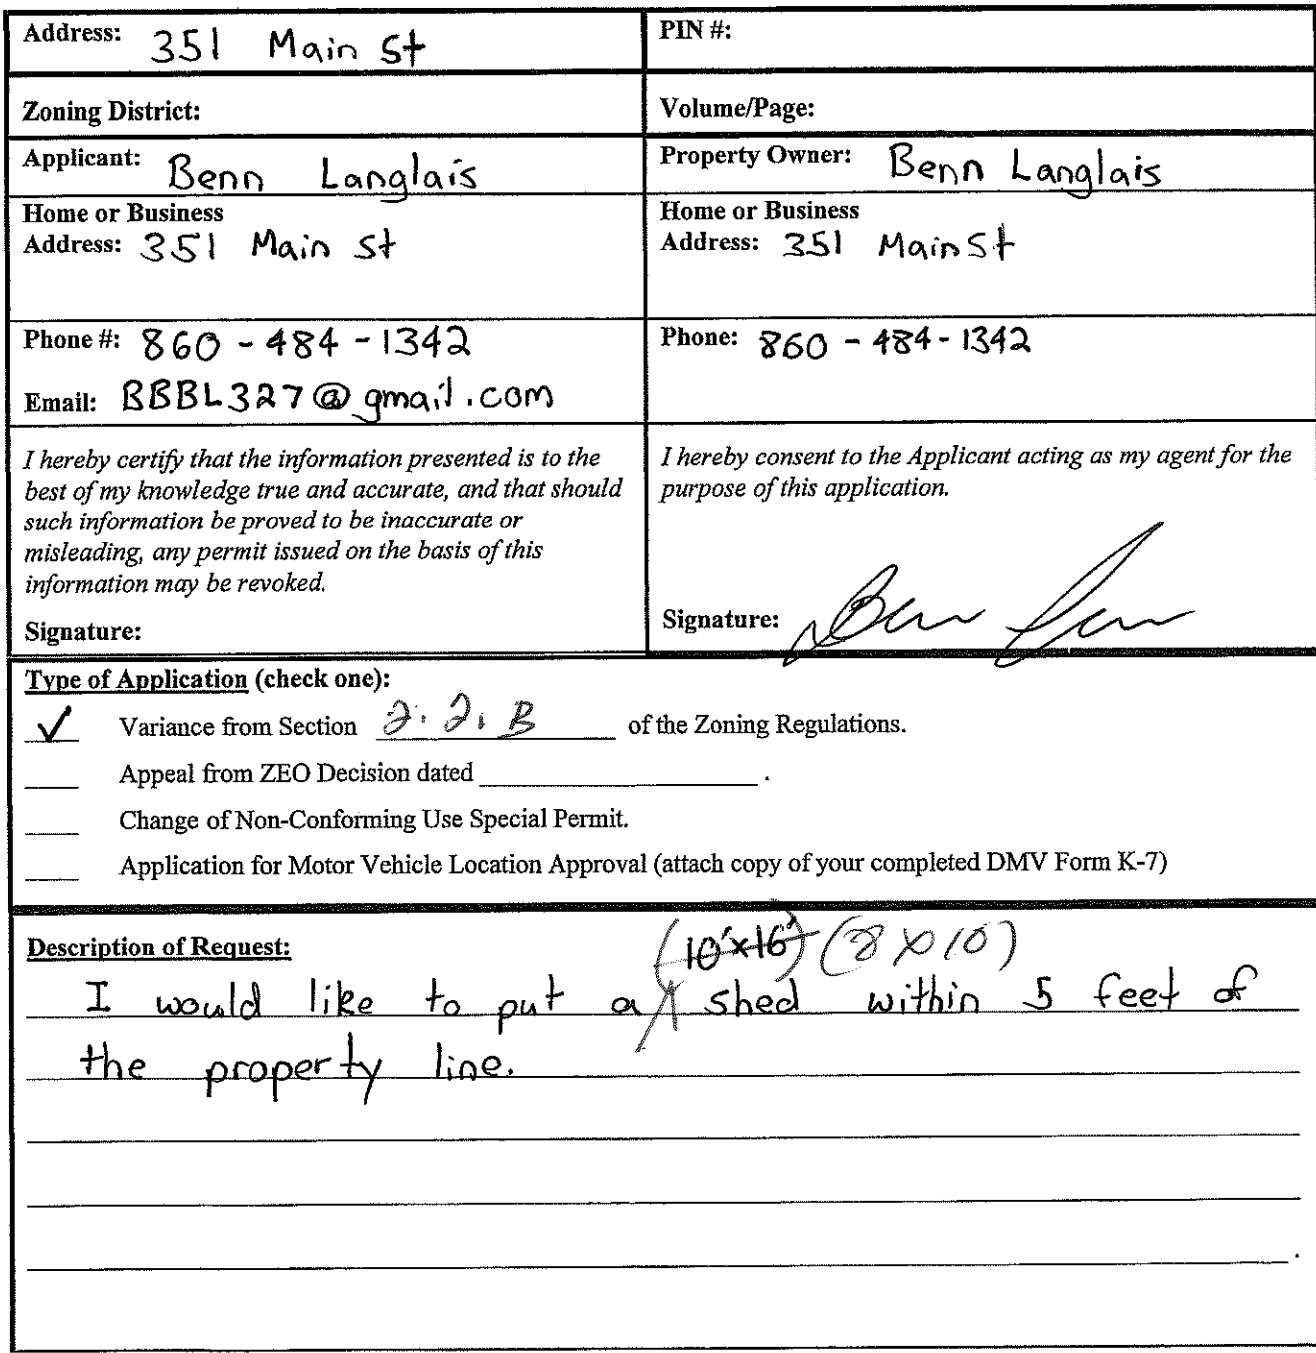 Address: 351 Main St
PIN #:
Zoning District:
Volume/Page:
Applicant: Benn Langlais
Property Owner: Benn Langlais
Home or Business
Address: 351 Main St
Home or Business
Address: 351 Main St
Phone #: 860-484-1342
Email: BBBL327@gmail.com
Phone: 860-484-1342
I hereby certify that the information presented is to the
best of my knowledge true and accurate, and that should
such information be proved to be inaccurate or
misleading, any permit issued on the basis of this
information may be revoked.
Signature:
I hereby consent to the Applicant acting as my agent for the
purpose of this application.
Signature:
Type of Application (check one):
✓ Variance from Section 2.2.B of the Zoning Regulations.
Appeal from ZEO Decision dated .
Change of Non-Conforming Use Special Permit.
Application for Motor Vehicle Location Approval (attach copy of your completed DMV Form K-7)
Description of Request:
(10'x16') (8x10)
I would like to put a shed within 5 feet of
the property line.